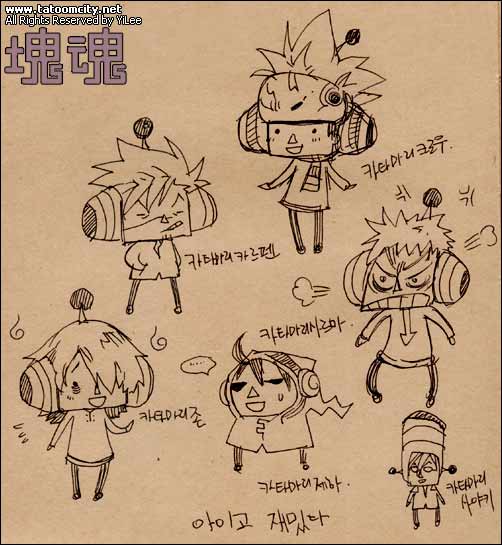 www.tatoomcity.net
All Rights Reserved by YiLee
塊魂
카타마리크로우.
카타마리카르펜
카타마리시르마.
카타마리존
....
카타마리제하.
카타마리
사야키
아이고 재밌다